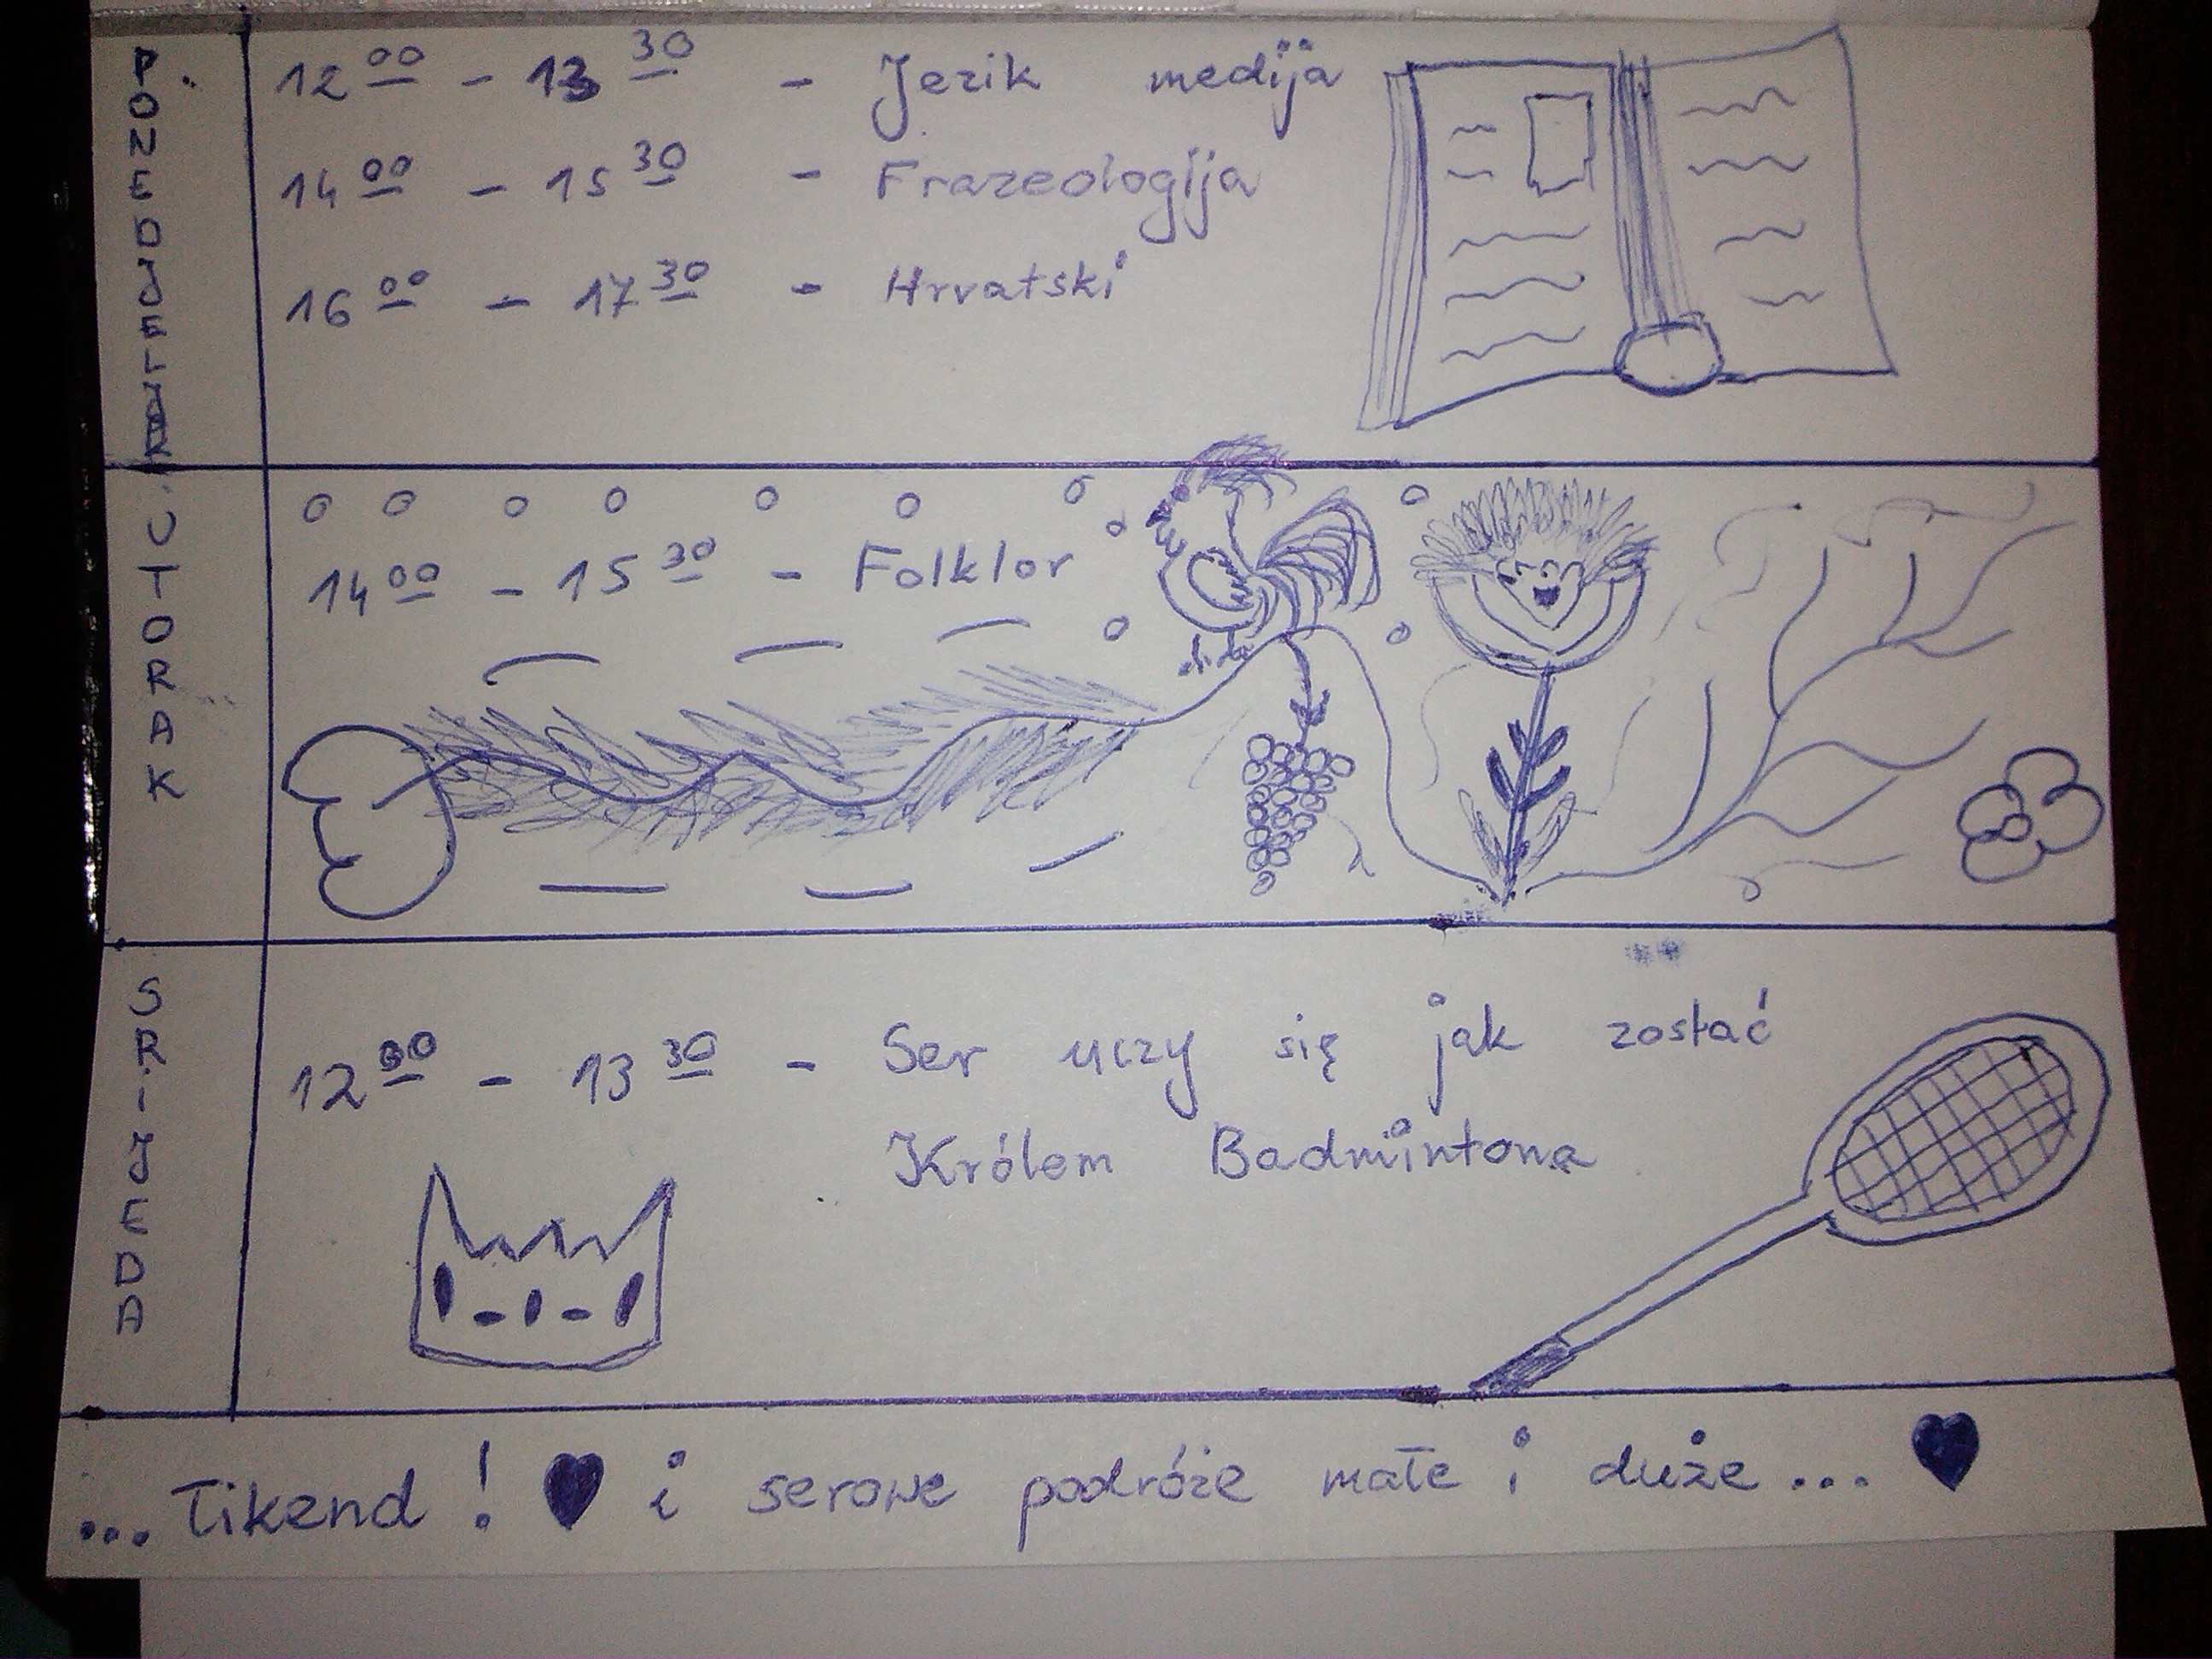 PONEDJELJAK
12 00 - 13 30 - Jezik medija
14 00 - 15 30 - Frazeologija
16 00 - 17 30 - Hrvatski
UTORAK
14 00 - 15 30 - Folklor
SRIJEDA
12 00 - 13 30 - Ser uczy się jak zostać
Królem Badmintona
... Tikend! ♥ i serowe podróże małe i duże... ♥